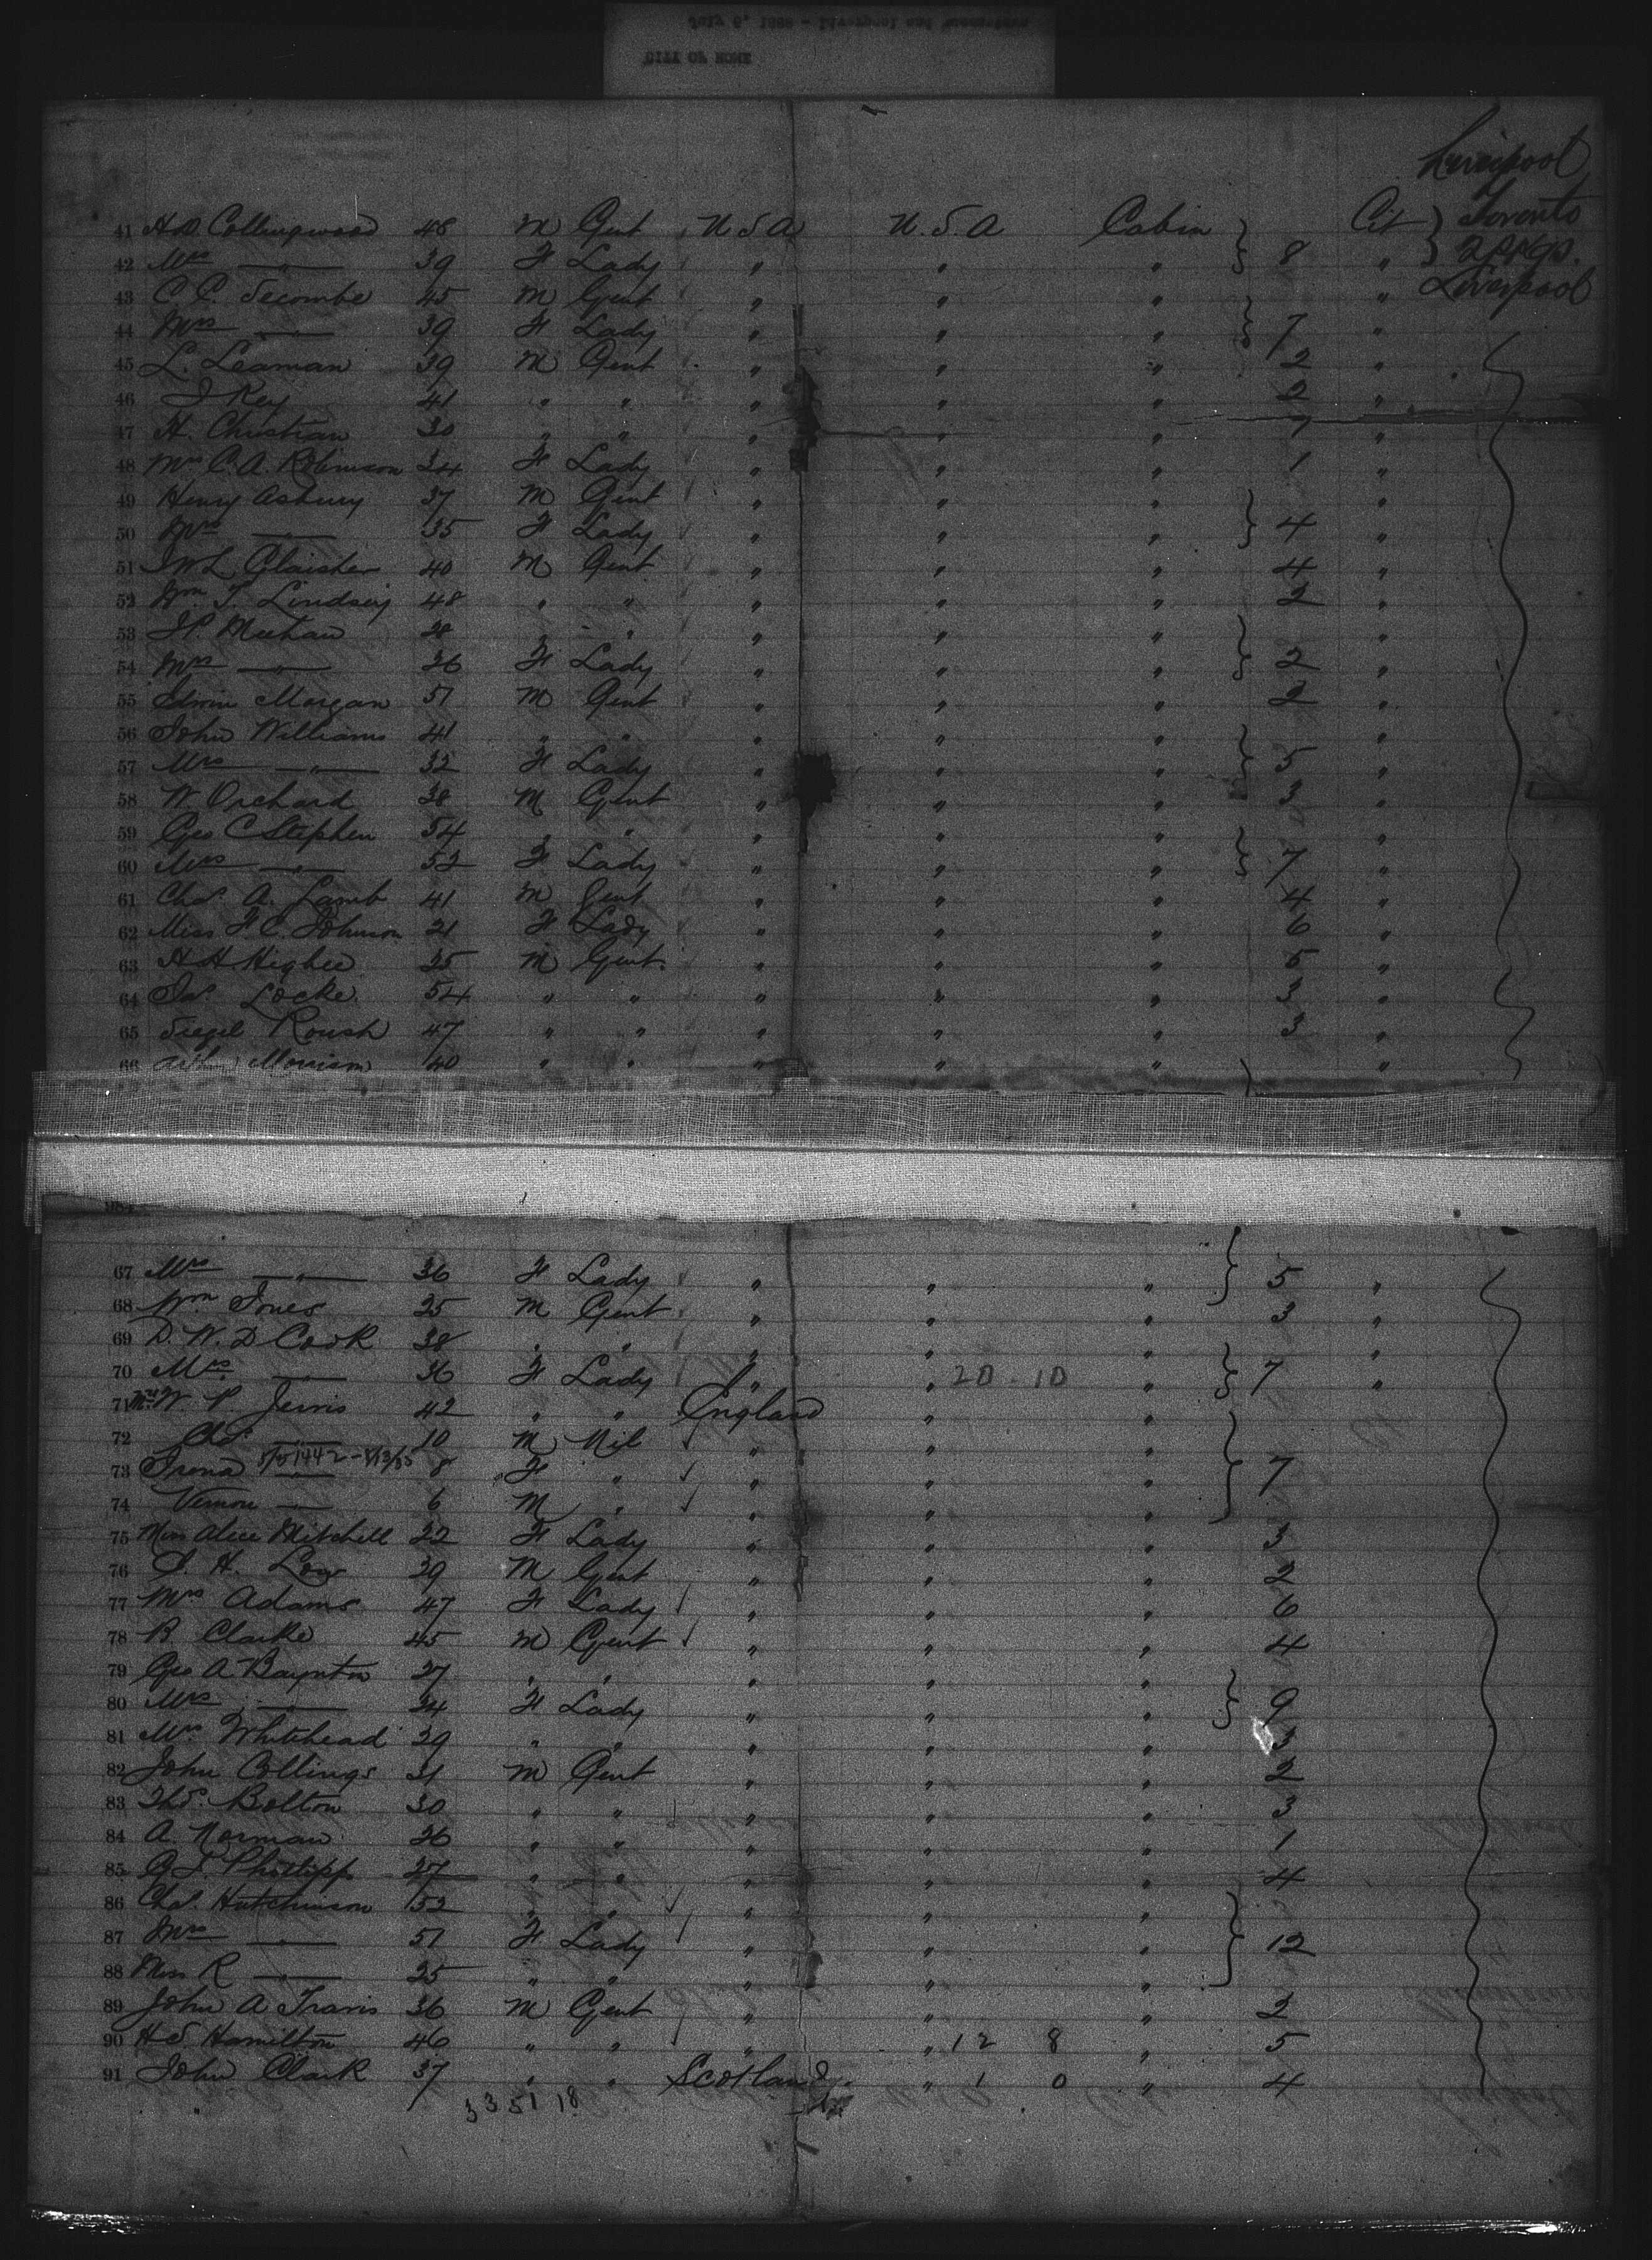 Liverpool
41 H.D. Collingwood 48 M Gent U S A U.S.A Cabin Cit Toronto
42 Mrs —"— 39 F Lady " " " 8 " 2 ppgs.
43 C.C. Secombe 45 M Gent " " " " Liverpool
44 Mrs —"— 39 F Lady " " " 7 "
45 L. Leaman 39 M Gent " " " 2 "
46 J Key 41 " " " " " 2 "
47 H. Christian 30 " " " " " "
48 Mrs C.A. Robinson 34 F Lady " " " 1 "
49 Henry Asbury 37 M Gent " " " "
50 Mrs —"— 35 F Lady " " " 4 "
51 J W L Glaisher 40 M Gent " " " 4 "
52 Wm. T. Lindsey 48 " " " " " 2 "
53 J.P. Meehan 28 " " " " " "
54 Mrs —"— 26 F Lady " " " 2 "
55 Edwin Morgan 51 M Gent " " " 2 "
56 John Williams 41 " " " " " "
57 Mrs —"— 32 F Lady " " " 5 "
58 W. Orchard 38 M Gent " " " 3 "
59 Geo C Stephen 54 " " " " " "
60 Mrs —"— 52 F Lady " " " 7 "
61 Chas. A. Lamb 41 M Gent " " " 4 "
62 Miss F.C. Johnson 21 F Lady " " " 6 "
63 H H Higbee 25 M Gent. " " " 5 "
64 Jas. Locke 54 " " " " " 3 "
65 Siegel Roush 47 " " " " " 3 "
66 Arthur Morrison 40 " " " " " "
67 Mrs —"— 36 F Lady " " " 5 "
68 Wm. Jones 25 M Gent " " " 3 "
69 D. W. D Cook 38 " " " " " "
70 Mrs. — 36 F Lady " " 20 - 10 " 7 "
71 Mrs W. P. Jervis 42 " " England " "
72 Chs. —"— 10 M Nil " " "
73 Irena — 8 F " " " " 7
74 Vernon — 6 M " " " "
75 Miss Alice Mitchell 22 F Lady " " " 3
76 S. H. Low 39 M Gent " " " 2
77 Mrs Adams 47 F Lady " " " 6
78 R. Clarke 45 M Gent " " " 4
79 Geo A Baynton 27 " " " " "
80 Mrs —"— 24 F Lady " " " 9
81 Mrs Whitehead 39 " " " " " 3
82 John Collings 31 M Gent " " " 2
83 Ths. Bolton 30 " " " " " 3
84 A. Norman 26 " " " " " 1
85 Phillipp 27 " " " " " 4
86 Chas. Hutchinson 52 " " " " "
87 Mrs —"— 51 F Lady " " " 12
88 Miss R —"— 25 " " " " "
89 John A Travis 36 M Gent " " " 2
90 H S Hamilton 46 " " " " 12 8 " 5
91 John Clark 37 " " Scotland " 1 0 " 4
33 51 18